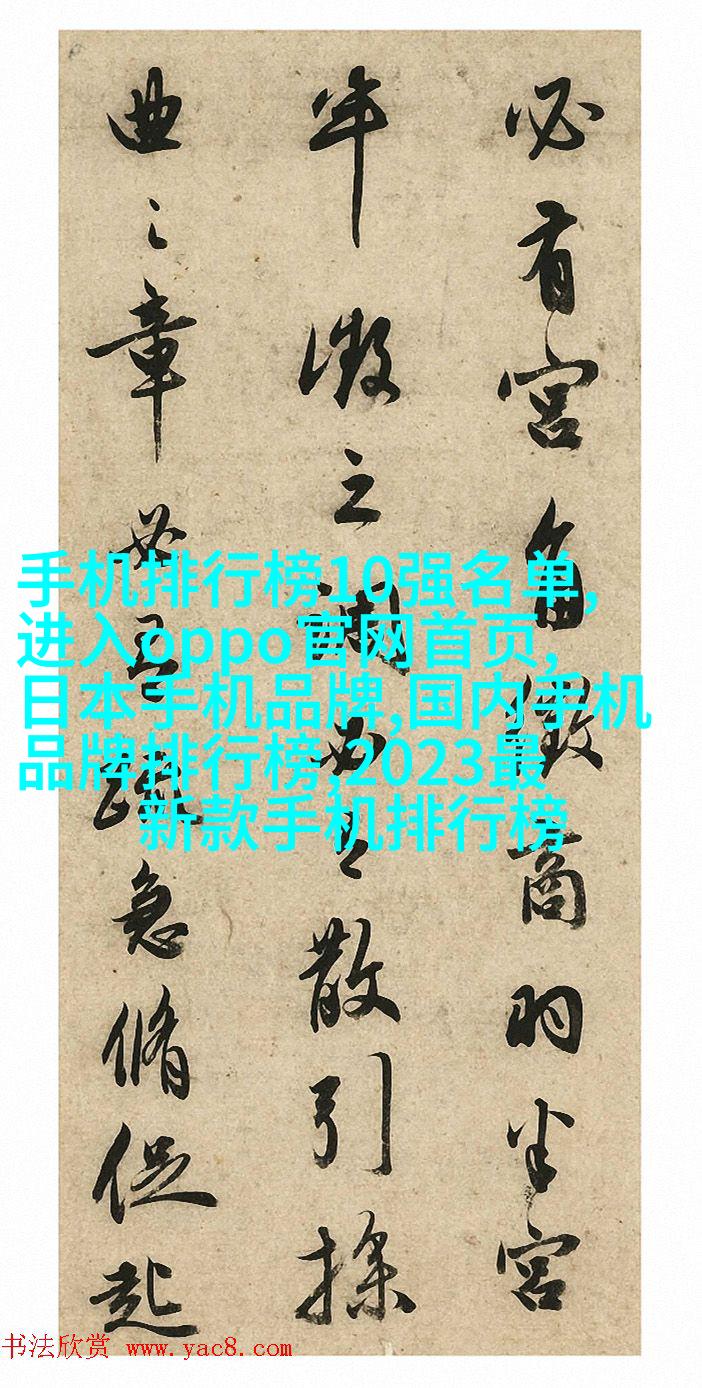 必有宫角徵商羽半宫
半徵之調必有散引操
曲之章必有急脩促起
手机排行榜10强名单,
进入oppo官网首页,
日本手机品牌,国内手机
品牌排行榜,2023最
新款手机排行榜
书法欣赏 www.yac8.com